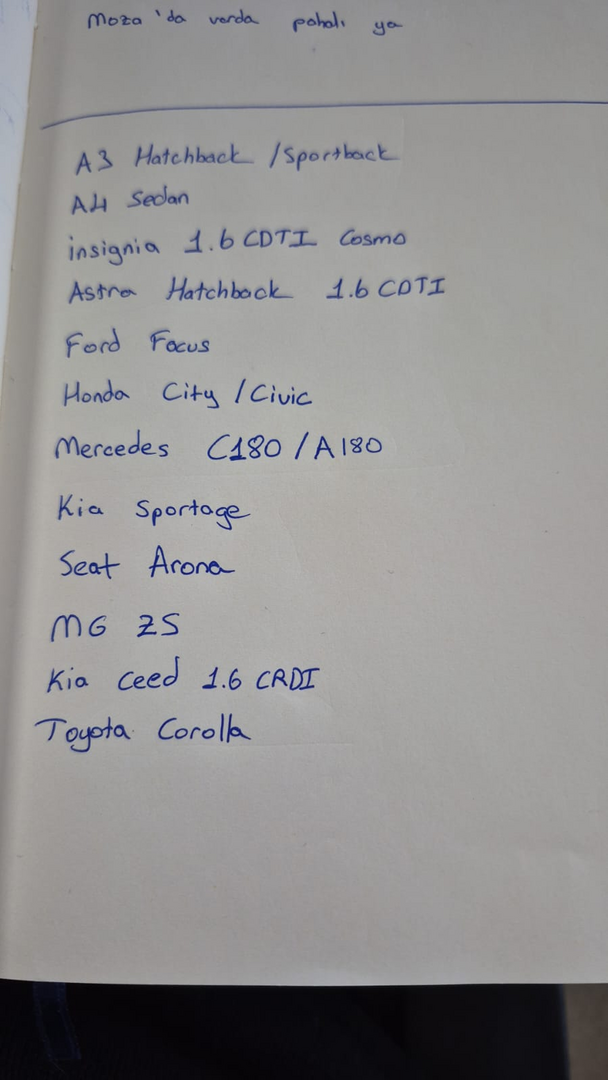 Moza'da varda pahalı ya
A3 Hatchback /Sportback
A4 Sedan
insignia 1.6 CDTI Cosmo
Astra Hatchback 1.6 CDTI
Ford Focus
Honda City /Civic
Mercedes C180 /A180
Kia Sportage
Seat Arona
MG ZS
Kia ceed 1.6 CRDI
Toyota Corolla